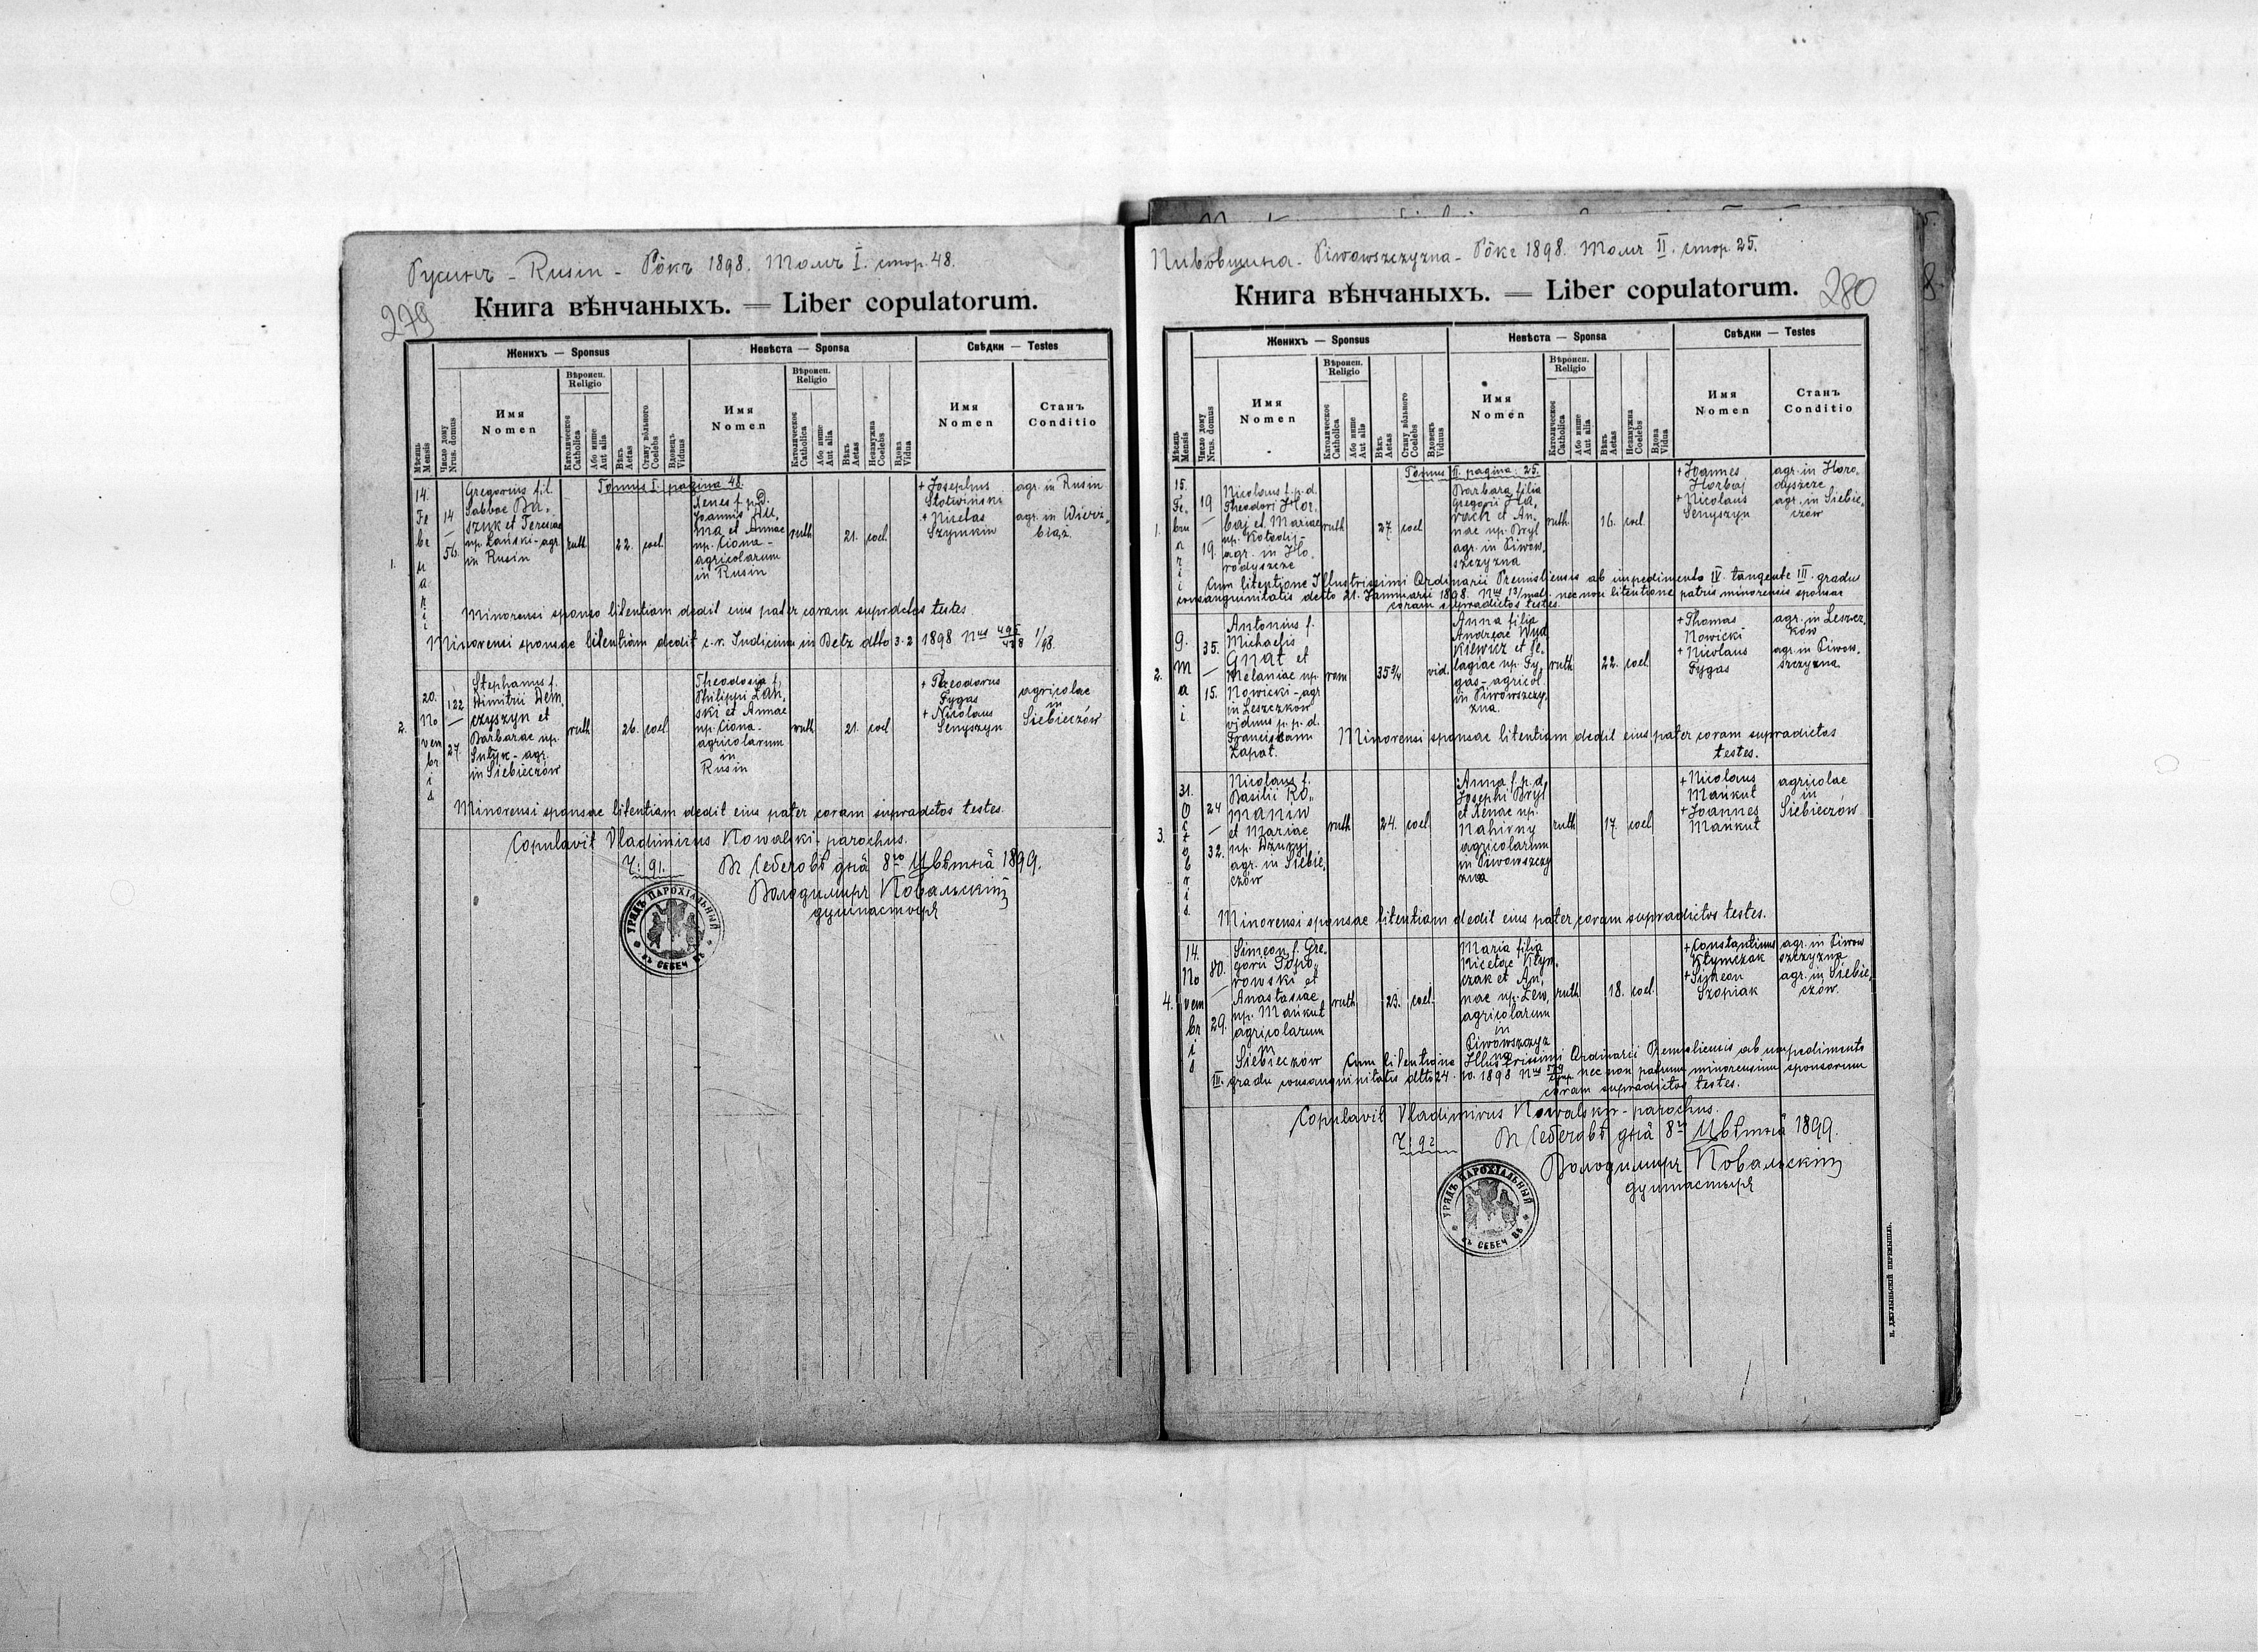 Русинъ - Rusin - Рôкъ 1898. Томъ I. стор. 48.
279
Книга вѣнчаныхъ. — Liber copulatorum.
Мѣсяць Mensis
Число дому Nrus. domus
Женихъ — Sponsus
Имя Nomen
Вѣроисп. Religio
Католическое Catholica
Або инше Aut alia
Вѣкъ Aetas
Стану вôльного Coelebs
Вдовецъ Viduus
Невѣста — Sponsa
Имя Nomen
Вѣроисп. Religio
Католическое Catholica
Або инше Aut alia
Вѣкъ Aetas
Незамужна Coelebs
Вдова Vidua
Свѣдки — Testes
Имя Nomen
Станъ Conditio
Tomus I. pagina 48.
1.
14.
Fe
br
u
a
r
i
i
14
—
56.
Gregorius fil.
Sabbae Ba-
szuk et Teresiae
np. Łański - agr.
in Rusin
ruth
22.
coel.
Xenes f. p. d.
Joannis
et Annae
np. Ciona -
agricolarum
in Rusin
ruth
21.
coel.
+ Josephus
Stotwiński
+ Nicetas
Szymkiw
agr. in Rusin
agr. in Wierz-
biąż.
Minorensi sponso licentiam dedit eius pater coram supradctos testes
Minorensi sponsae licentiam dedit c. r. Iudicium in Bełz dtto 3.2 1898 Nus
2.
20.
No
vem
br
i
s
122
—
27.
Stephanus f.
Dimitrii Dem-
czyszyn et
Barbarae np.
Sułyk - agr.
in Siebieczów
ruth
26.
coel.
Theodosia f.
Philippi Łań-
ski et Annae
np. Ciona -
agricolarum
in
Rusin
ruth
21.
coel
+ Theodorus
Fygas
+ Nicolaus
Senyszyn
agricolae
in
Siebieczów
Minorensi sponsae licentiam dedit eius pater coram supradctos testes.
Copulavit Vladimirus Kowalski - parochus.
Ч: 91.
Въ Себечовѣ дня 8го Цвѣтня 1899.
Володимиръ Ковальскій
душпастырь
УРЯДЪ ПАРОХІАЛЬНЫЙ
ВЪ СЕБЕЧ ВѢ
Пивовщина - Piwowszczyzna - Рôкъ 1898. Томъ II. стор. 25.
280
Книга вѣнчаныхъ. — Liber copulatorum.
Мѣсяць Mensis
Число дому Nrus. domus
Женихъ — Sponsus
Имя Nomen
Вѣроисп. Religio
Католическое Catholica
Або инше Aut alia
Вѣкъ Aetas
Стану вôльного Coelebs
Вдовецъ Viduus
Невѣста — Sponsa
Имя Nomen
Вѣроисп. Religio
Католическое Catholica
Або инше Aut alia
Вѣкъ Aetas
Незамужна Coelebs
Вдова Vidua
Свѣдки — Testes
Имя Nomen
Станъ Conditio
Tomus II. pagina: 25.
1.
15.
Fe-
bru
a
r
i
i
19
—
19.
Nicolaus f. p. d.
Theodori Hor-
baj et Mariae
np. Kołodij -
agr. in Ho-
rodyszcze
ruth
27.
coel
Barbara filia
Gregorii
et An-
nae np. Bryl
agr. in Piwow-
szczyzna
ruth.
16.
coel.
+ Joannes
Horbaj
+ Nicolaus
Senyszyn
agr. in Horo-
dyszcze
agr. in Siebie-
czów
Cum licentione Illustrissimi Ordinarii Premisliensis ab impedimento IV. tangente III. gradus
consanguinitatis dtto 21. Januarii 1898. Nus 13/mat. nec non licentione patris minorensis sponsae
coram supradictos testes.
2.
9.
M
a
i
35.
—
15.
Antonius f.
Michaelis
Gnat et
Melaniae np.
Nowicki - agr
in Leszczków
viduus p. p. d.
Franciscam
Łapat.
rom
35 3/4
vid.
Anna filia
Andreae Wyd-
kiewicz et Pe-
lagiae np. Fy-
gas - agricol.
in Piwowszczy-
zna.
ruth
22.
coel.
+ Thomas
Nowicki
+ Nicolaus
Fygas
agr. in Leszcz-
ków
agr. in Piwow-
szczyzna.
Minorensi sponsae licentiam dedit eius pater coram supradictos
testes.
3.
31.
O
c
t
o
b
r
i
s.
24
—
32.
Nicolaus f.
Basilii Ro-
maniw
et Mariae
np. Dżuryj
agr. in Siebie-
czów
ruth
24.
coel
Anna f. p. d.
Josephi Bryl
et Xenae np.
Nahirny
agricolarum
in Piwowszczy
zna
ruth
17.
coel
+ Nicolaus
Mańkut
+ Joannes
Mańkut
agricolae
in
Siebieczów
Minorensi sponsae licentiam dedit eius pater coram supradictos testes.
4.
14.
No
vem
br
i
s
80.
—
29.
Simeon f. Gre-
gorii Topo-
rowski et
Anastasiae
np. Mańkut
agricolarum
in
Siebieczów
ruth
23.
coel.
Maria filia
Nicetae Kłym-
czak et An-
nae np. Lew,
agricolarum
in
Piwowszczyz
na
ruth
18.
coel.
+ Constantinus
Kłymczak
+ Simeon
Szopiak
agr. in Piwow
szczyzna
agr. in Siebie-
czów.
Cum licentione Illustrissimi Ordinarii Premisliensis ab impedimento
III. gradu consanguinitatis dtto 24. 10. 1898 Nus nec non patrum minorensium sponsorum
coram supradictos testes.
Copulavit Vladimirus Kowalskij - parochus.
Ч: 92
Въ Себечовѣ дня 8го Цвѣтня 1899.
Володимиръ Ковальскій
душпастырь
УРЯДЪ ПАРОХІАЛЬНЫЙ
ВЪ СЕБЕЧ ВѢ
И. ДЖУЛЫНЬСКІЙ ПЕРЕМЫШЛЬ.